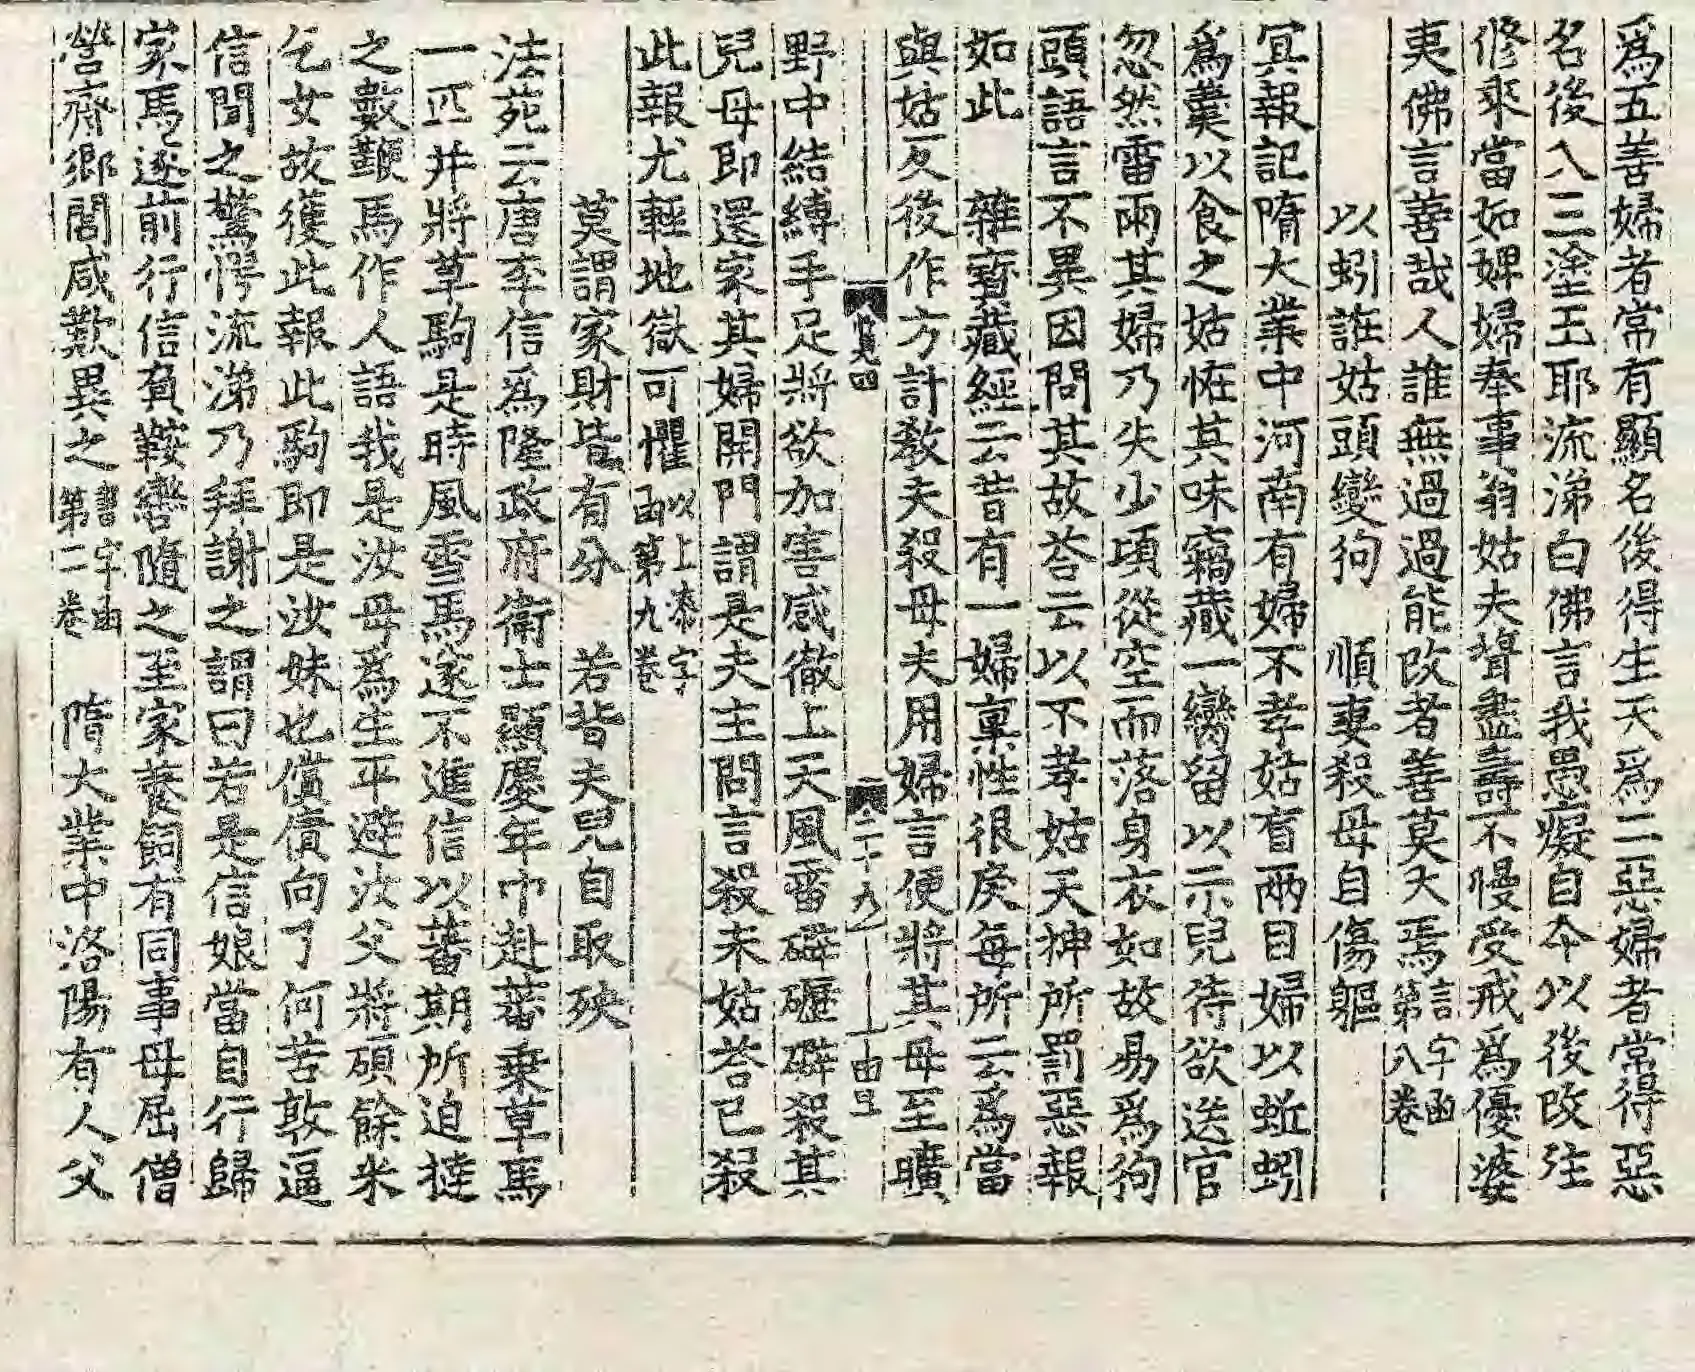 爲五善婦者常有顯名後得生天爲二惡婦者常得惡
名後入三塗玉耶流涕白佛言我愚癡自今以後改往
修來當如婢婦奉事翁姑夫壻盡壽不慢受戒爲優婆
夷佛言善哉人誰無過過能改者善莫大焉言字函第八卷
以蚓誑姑頭變狗　順妻殺母自傷軀
冥報記隋大業中河南有婦不孝姑盲兩目婦以蚯蚓
爲羹以食之姑恠其味竊藏一臠留以示兒待欲送官
忽然雷雨其婦乃失少頃從空而落身衣如故易爲狗
頭語言不異因問其故荅云以不孝姑天神所罰惡報
如此　雜寶藏經云昔有一婦稟性很戾每所云爲當
與姑反後作方計敎夫殺母夫用婦言便將其母至曠
二十九
野中結縛手足將欲加害感徹上天風雷礔礰礔殺其
兒母即還家其婦開門謂是夫主問言殺未姑荅已殺
此報尤輕地獄可懼以上漆字函第九卷
莫謂家財皆有分　若背夫兒自取殃
法苑云唐李信爲隆政府衛士顯慶年中赴蕃乗草馬
一匹并將草駒是時風雪馬遂不進信以蕃期所迫撻
之數鞭馬作人語我是汝母爲生平避汝父將碩餘米
乞女故獲此報此駒即是汝妹也償債向了何苦敦逼
信聞之驚愕流涕乃拜謝之謂曰若是信娘當自行歸
家馬遂前行信負鞍轡隨之至家養飼有同事母屈僧
營齋鄉閭咸歎異之書字函第二卷　隋大業中洛陽有人父